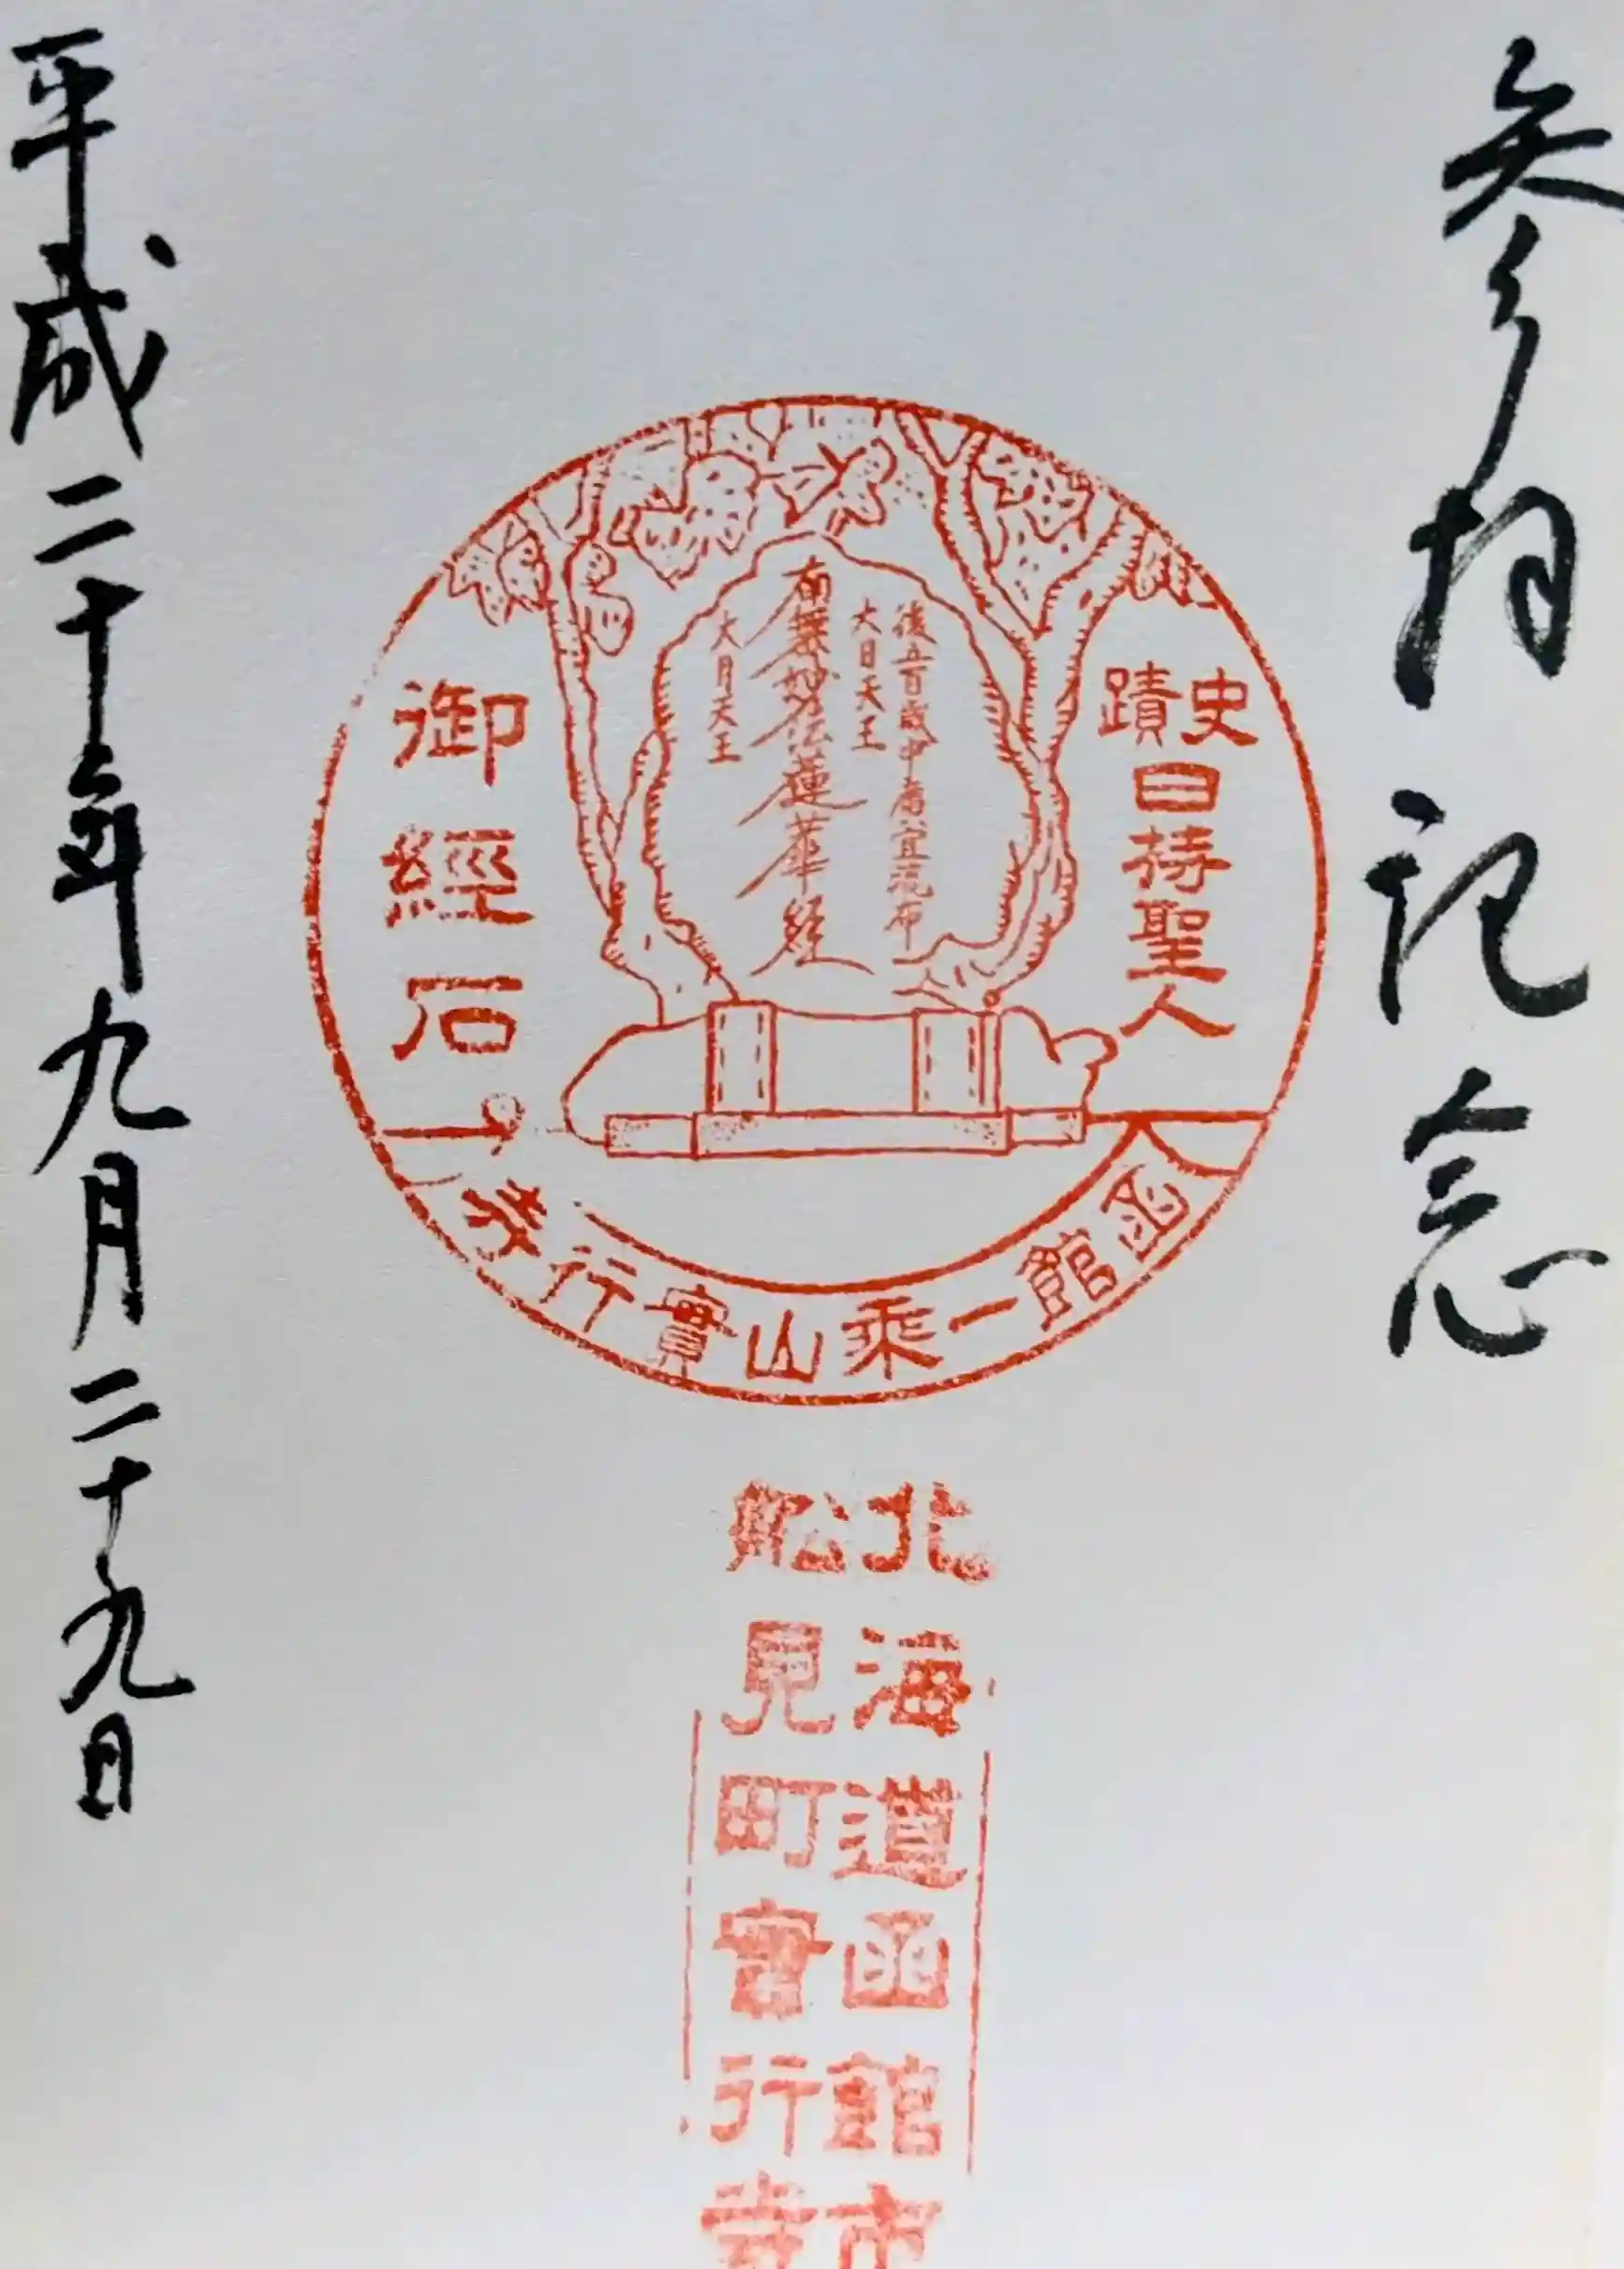 参拝記念
史蹟
日持聖人
後五百歳中廣宣流布
大日天王
南無妙法蓮華経
大月天王
御經石
函館一乘山實行寺
北海道函館市
舩見町實行寺
平成二十年九月二十九日